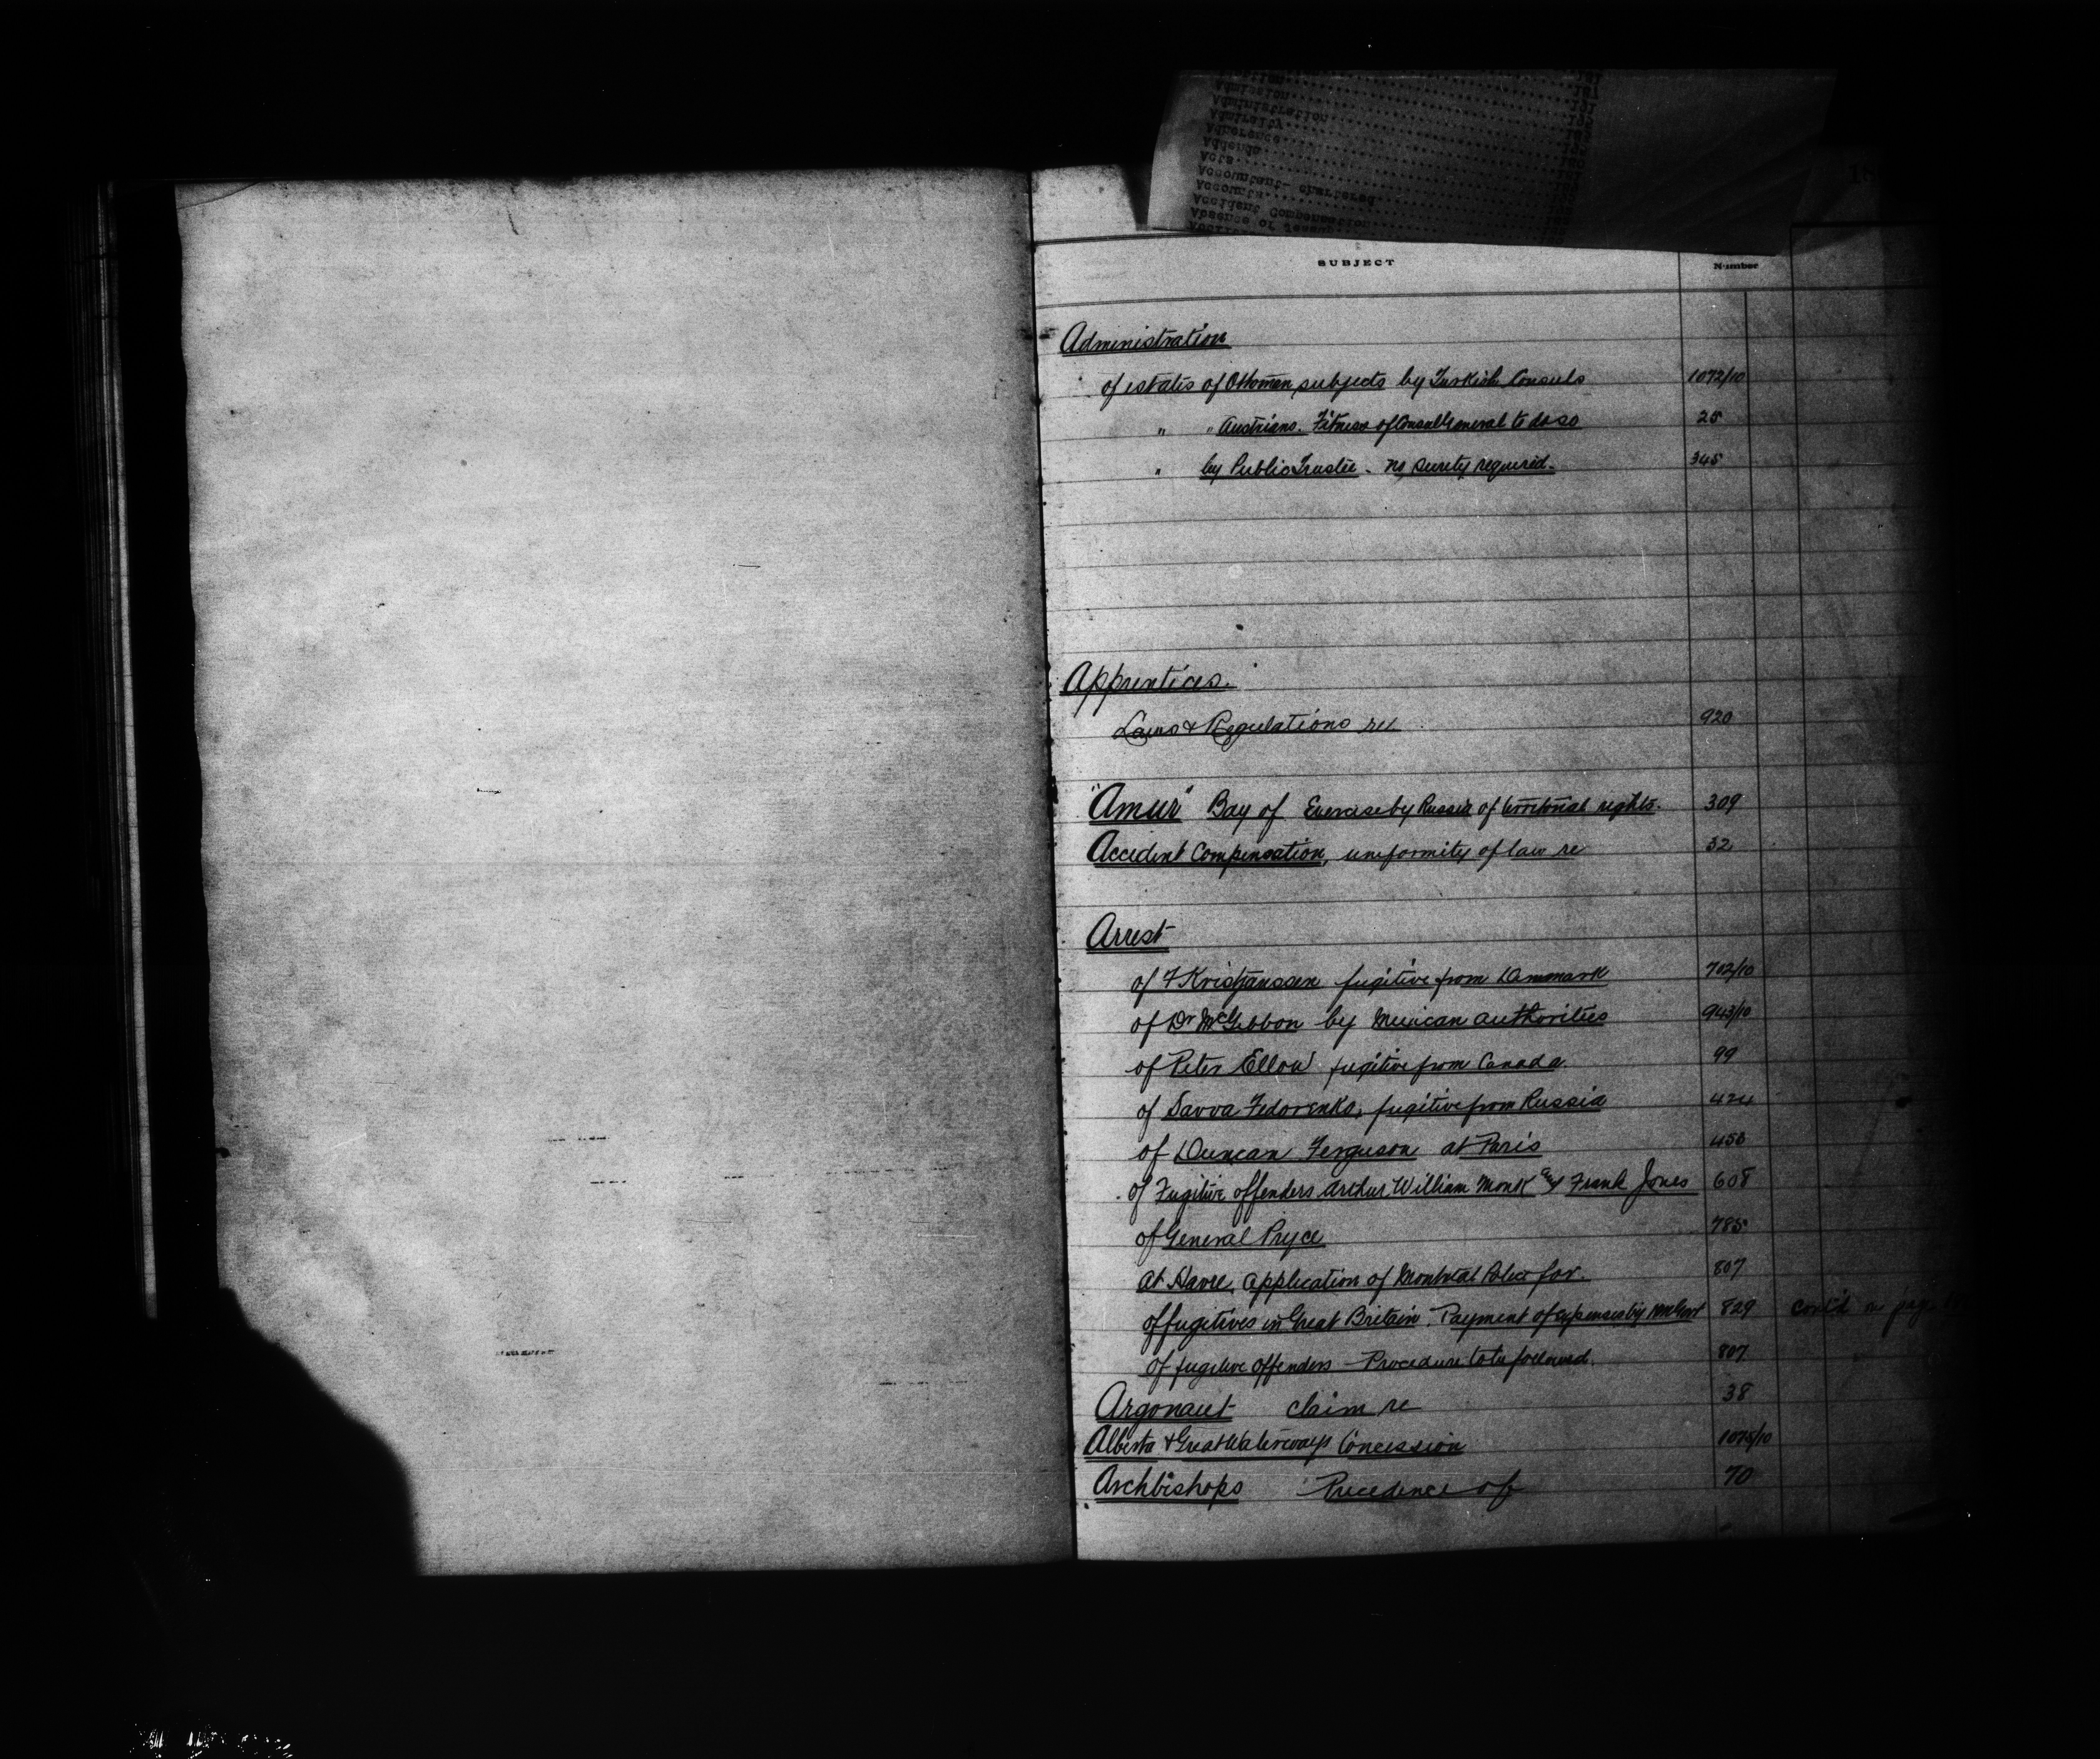 Admission
Administration
Admiralty
Adherence
Addenda
Acts
Accountant- chartered
Accounts
Accident Compensation
Absence of
SUBJECT Number
Administration
of estates of Ottoman subjects by Turkish Consuls 1072/10
" " Austrians. Fitness of Consul General to do so 25
" by Public Trustee - no surety required. 345
Apprentices.
Laws & Regulations re 920
"Amur" Bay of Exercise by Russia of territorial rights. 309
Accident Compensation, uniformity of law re 32
Arrest
of F Kristjanssen fugitive from Danmark 702/10
of Dr McGibbon by Mexican authorities 943/10
of Peter Ellow fugitive from Canada. 99
of Savva Fedorenko, fugitive from Russia 424
of Duncan Ferguson at Paris 458
of Fugitive offenders Arthur William Monk and Frank Jones 608
of General Pryce 785
at Havre, application of Montreal Police for. 807
of fugitives in Great Britain. Payment of expenses by Govt 829 cont'd on page
of fugitive offenders - Procedure to be followed. 807
Argonaut claim re 38
Alberta & Great Waterways Concession 1075/10
Archbishops Precedence of 70